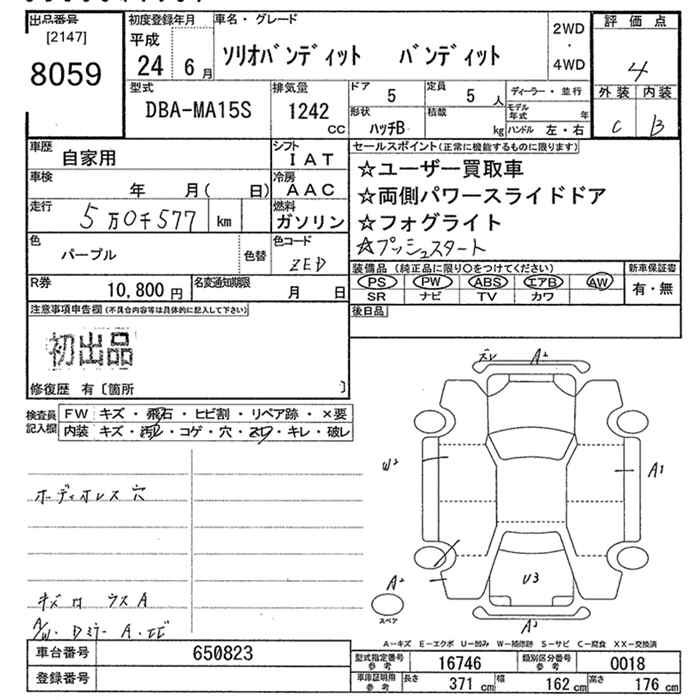 出品番号
[2147]
8059
初度登録年月
平成
24 6月
車名・グレード
ソリオバンディット バンディット
2WD
・
4WD
評価点
4
外装 内装
C B
型式
DBA-MA15S
排気量
1242
cc
ドア
5
定員
5人
形状
ハッチB
積載
kg
ディーラー・並行
モデル年式 年
ハンドル 左・右
車歴
自家用
シフト
IAT
車検
年 月( 日)
冷房
AAC
走行
5万0千577 km
燃料
ガソリン
色
パープル
色替
色コード
ZED
R券
10,800円
名変通知期限
月 日
セールスポイント(正常に機能するものに限ります)
☆ユーザー買取車
☆両側パワースライドドア
☆フォグライト
☆プッシュスタート
装備品 (純正品に限り○をつけてください)
PS PW ABS エアB AW
SR ナビ TV カワ
新車保証書
有・無
後日品
注意事項申告欄(不具合内容等は具体的に記入して下さい)
初出品
修復歴 有〔箇所 〕
検査員記入欄
FW キズ・飛石・ヒビ割・リペア跡・×要
内装 キズ・汚レ・コゲ・穴・スレ・キレ・破レ
ズレ A2
W2
A1
U3
A2
スペア
A2
A-キズ E-エクボ U-凹み W-補修跡 S-サビ C-腐食 XX-交換済
車台番号 650823
登録番号
型式指定番号参考 16746
類別区分番号参考 0018
車庫証明用参考 長さ 371cm 幅 162cm 高さ 176cm